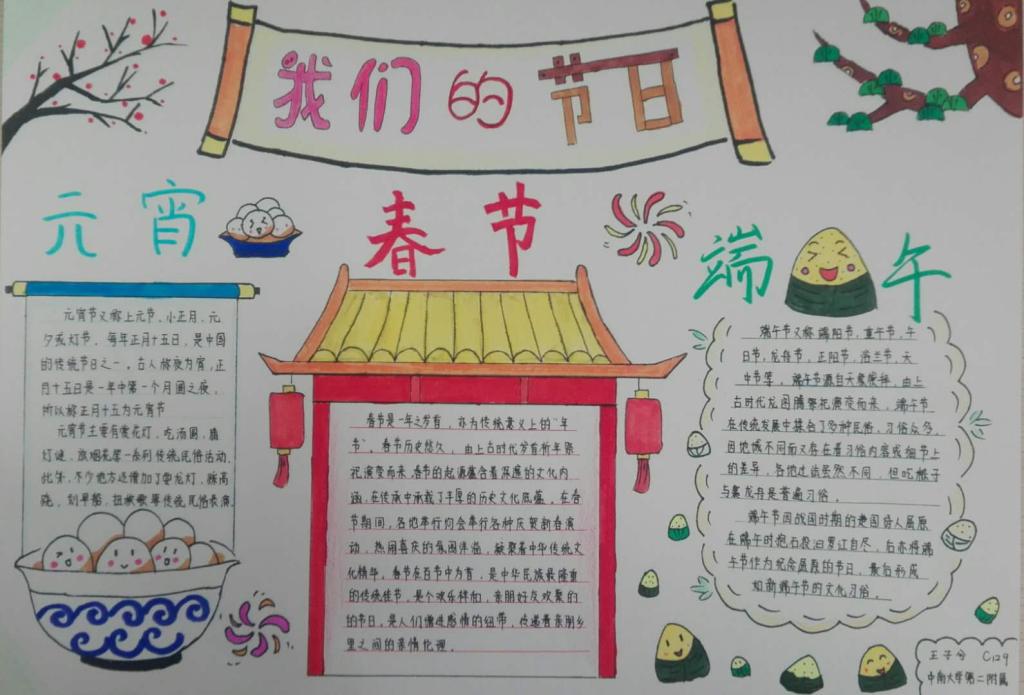 我们的节日
元宵
春节
端午
元宵节又称上元节、小正月、元
夕或灯节，每年正月十五日，是中国
的传统节日之一。古人称夜为宵，正
月十五日是一年中第一个月圆之夜，
所以称正月十五为元宵节
元宵节主要有赏花灯、吃汤圆、猜
灯谜、放烟花等一系列传统民俗活动。
此外，不少地方还增加了耍龙灯、踩高
跷、划旱船、扭秧歌等传统民俗表演。
春节是一年之岁首，亦为传统意义上的“年
节”。春节历史悠久，由上古时代岁首祈年祭
祀演变而来，春节的起源蕴含着深邃的文化内
涵，在传承中承载了丰厚的历史文化底蕴。在春
节期间，各地举行均会举行各种庆贺新春演
动，热闹喜庆的氛围洋溢，凝聚着中华传统文
化精华。春节在百节中为首，是中华民族最隆重
的传统佳节，是个欢乐祥和，亲朋好友欢聚的
的节日，是人们增进感情的纽带，传递着亲朋乡
里之间的亲情伦理。
端午节又称端阳节，重午节，午
日节，龙舟节，正阳节，浴兰节，天
中节等，端午节源自天象崇拜，由上
古时代龙图腾祭祀演变而来，端午节
在传统发展中揉合了多种民俗，习俗众多，
因地域不同而又存在着习俗内容或细节上
的差异，各地过法虽然不同，但吃粽子
与赛龙舟是普遍习俗。
端午节因战国时期的楚国诗人屈原
在端午时抱石投汨罗江自尽，后亦将端
午节作为纪念屈原的节日，最后形成
如前端午节的文化习俗。
王子兮 C129
中南大学第二附属